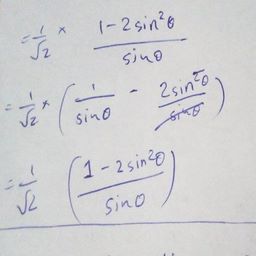 = 1/√2 × (1-2sin²θ)/sinθ
= 1/√2 × (1/sinθ - 2sin²θ/sinθ)
= 1/√2 ((1-2sin²θ)/sinθ)